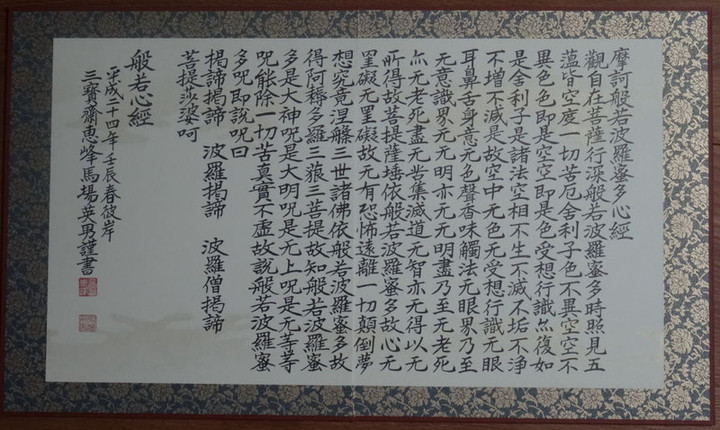 摩訶般若波羅蜜多心經
觀自在菩薩行深般若波羅蜜多時照見五
蘊皆空度一切苦厄舍利子色不異空空不
異色色即是空空即是色受想行識亦復如
是舍利子是諸法空相不生不滅不垢不淨
不增不減是故空中无色无受想行識无眼
耳鼻舌身意无色聲香味觸法无眼界乃至
无意識界无无明亦无无明盡乃至无老死
亦无老死盡无苦集滅道无智亦无得以无
所得故菩提薩埵依般若波羅蜜多故心无
罣礙无罣礙故无有恐怖遠離一切顛倒夢
想究竟涅槃三世諸佛依般若波羅蜜多故
得阿耨多羅三藐三菩提故知般若波羅蜜
多是大神呪是大明呪是无上呪是无等等
呪能除一切苦真實不虛故說般若波羅蜜
多呪即說呪曰
揭諦揭諦 波羅揭諦 波羅僧揭諦
菩提莎婆呵
般若心經
平成二十四年壬辰春彼岸
三寶齋惠峰馬場英男謹書